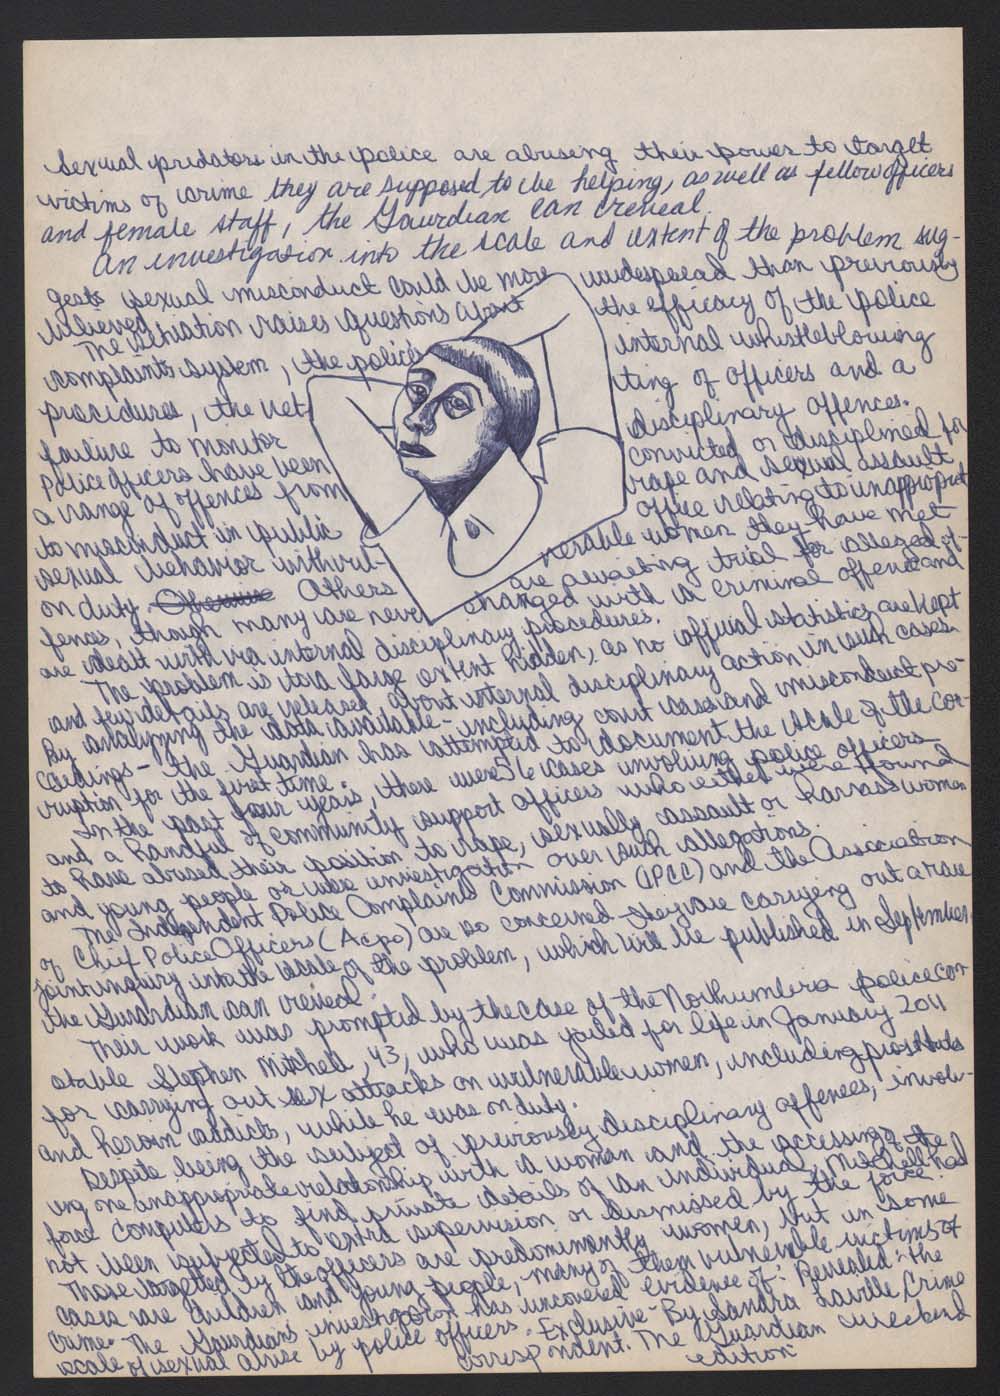 Sexual predators in the police are abusing their power to target
victims of crime they are supposed to be helping, as well as fellow officers
and female staff, the Gaurdian can reveal.
An investigation into the scale and extent of the problem sug-
gests sexual misconduct could be more widespread than previously
believed.
The situation raises questions about the efficacy of the police
complaints system, the police's internal whistleblowing
procedures, the vetting of officers and a
failure to monitor disciplinary offences.
Police officers have been convicted or disciplined for
a range of offences from rape and sexual assault
to misconduct in public office relating to inappropriate
sexual behavior with vulnerable women they have met
on duty. Others are awaiting trial for alleged of-
fences, though many are never charged with a criminal offence and
are dealt with via internal disciplinary procedures.
The problem is to a large extent hidden, as no official statistics are kept
and few details are released about internal disciplinary action in such cases.
By analyzing the data available - including court cases and misconduct pro-
ceedings - the Guardian has attempted to document the scale of the cor-
ruption for the first time.
In the past four years, there were 56 cases involving police officers
and a handful of community support officers who either were found
to have abused their position to rape, sexually assault or harass women
and young people or were investigation over such allegations.
The Independent Police Complaints Commission (IPCC) and the Association
of Chief Police Officers (Acpo) are so concerned they are carrying out a rare
joint inquiry into the scale of the problem, which will be published in September
the Guardian can reveal.
Their work was prompted by the case of the Northumbria police con-
stable Stephen Mitchell, 43, who was jailed for life in January 2011
for carrying out sex attacks on vulnerable women, including prostitutes
and heroin addicts, while he was on duty.
Despite being the subject of previously disciplinary offences, involv-
ing one inappropriate relationship with a woman and the accessing of the
force computers to find private details of an individual, Mitchell had
not been subjected to extra supervision or dismissed by the force.
Those targetted by the officers are predominantly women, but in some
cases are children and young people, many of them vulnerable victims of
crime. The Gaurdian's investigation has uncovered evidence of: Revealed: the
scale of sexual abuse by police officers. Exclusive - By Sandra Laville Crime
correspondent. The Guardian weekend
edition